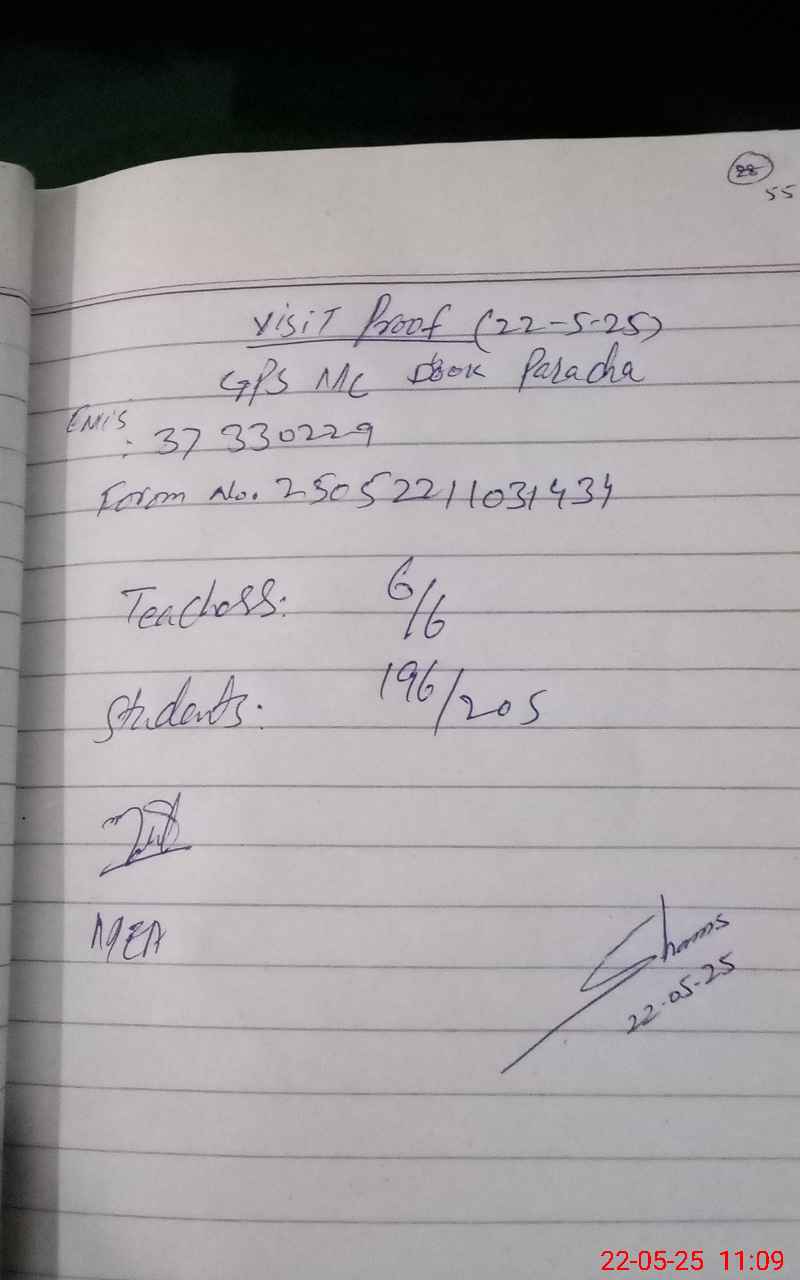 28
55
Visit Proof (22-5-25)
GPS MC Dook Paracha
EMIS
: 37330229
Form No. 25052211031434
Teachers: 6/6
Students: 196/205
MEA
Shams
22-05-25
22-05-25 11:09